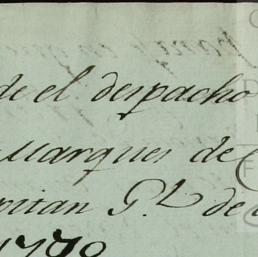 de el despacho
Marques de
pitan G.L de
1798